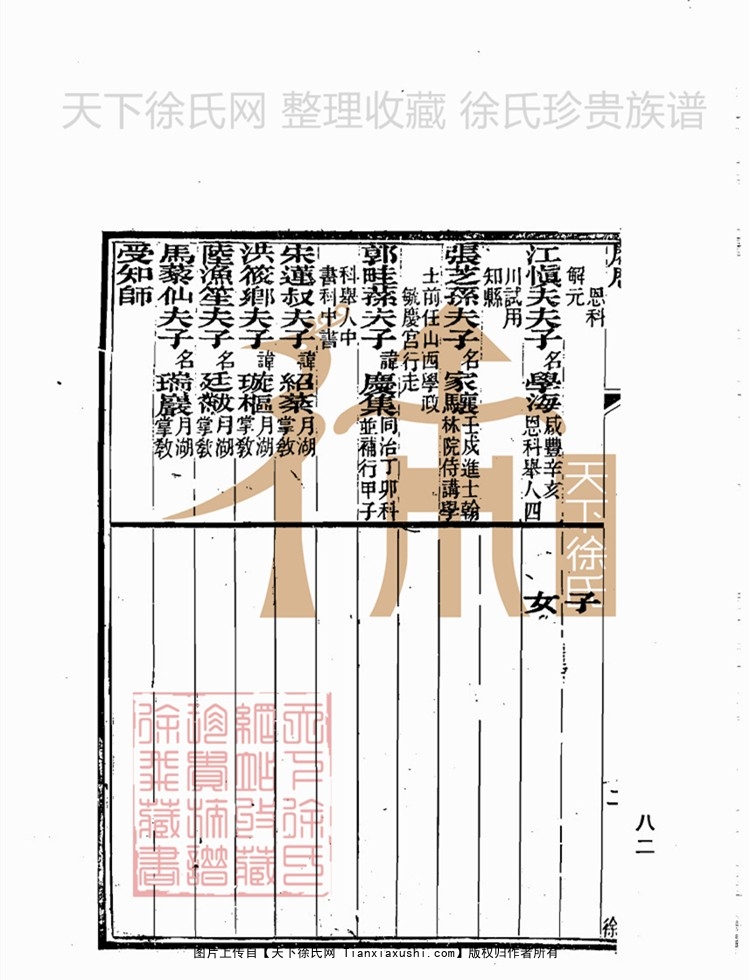 天下徐氏网 整理收藏 徐氏珍贵族谱
恩科
解元
江慎夫夫子 名 學海 咸豐辛亥
恩科舉人四
川試用
知縣
張芝孫夫子 名 家驤 壬戌進士翰
林院侍講學
士前任山西學政
毓慶宮行走
郭畦蓀夫子 諱 慶集 同治丁卯科
並補行甲子
科舉人中
書科中書
宋蓮叔夫子 諱 紹棻 月湖
掌教
洪筱鄉夫子 諱 璇樞 月湖
掌教
陸漁笙夫子 名 廷黻 月湖
掌教
馬藜仙夫子 名 瑞巖 月湖
掌教
受知師
子
女
二
徐
八二
天下徐氏
天下徐氏
網站收藏
珍貴族譜
图片上传自【天下徐氏网 tianxiaxushi.com】版权归作者所有